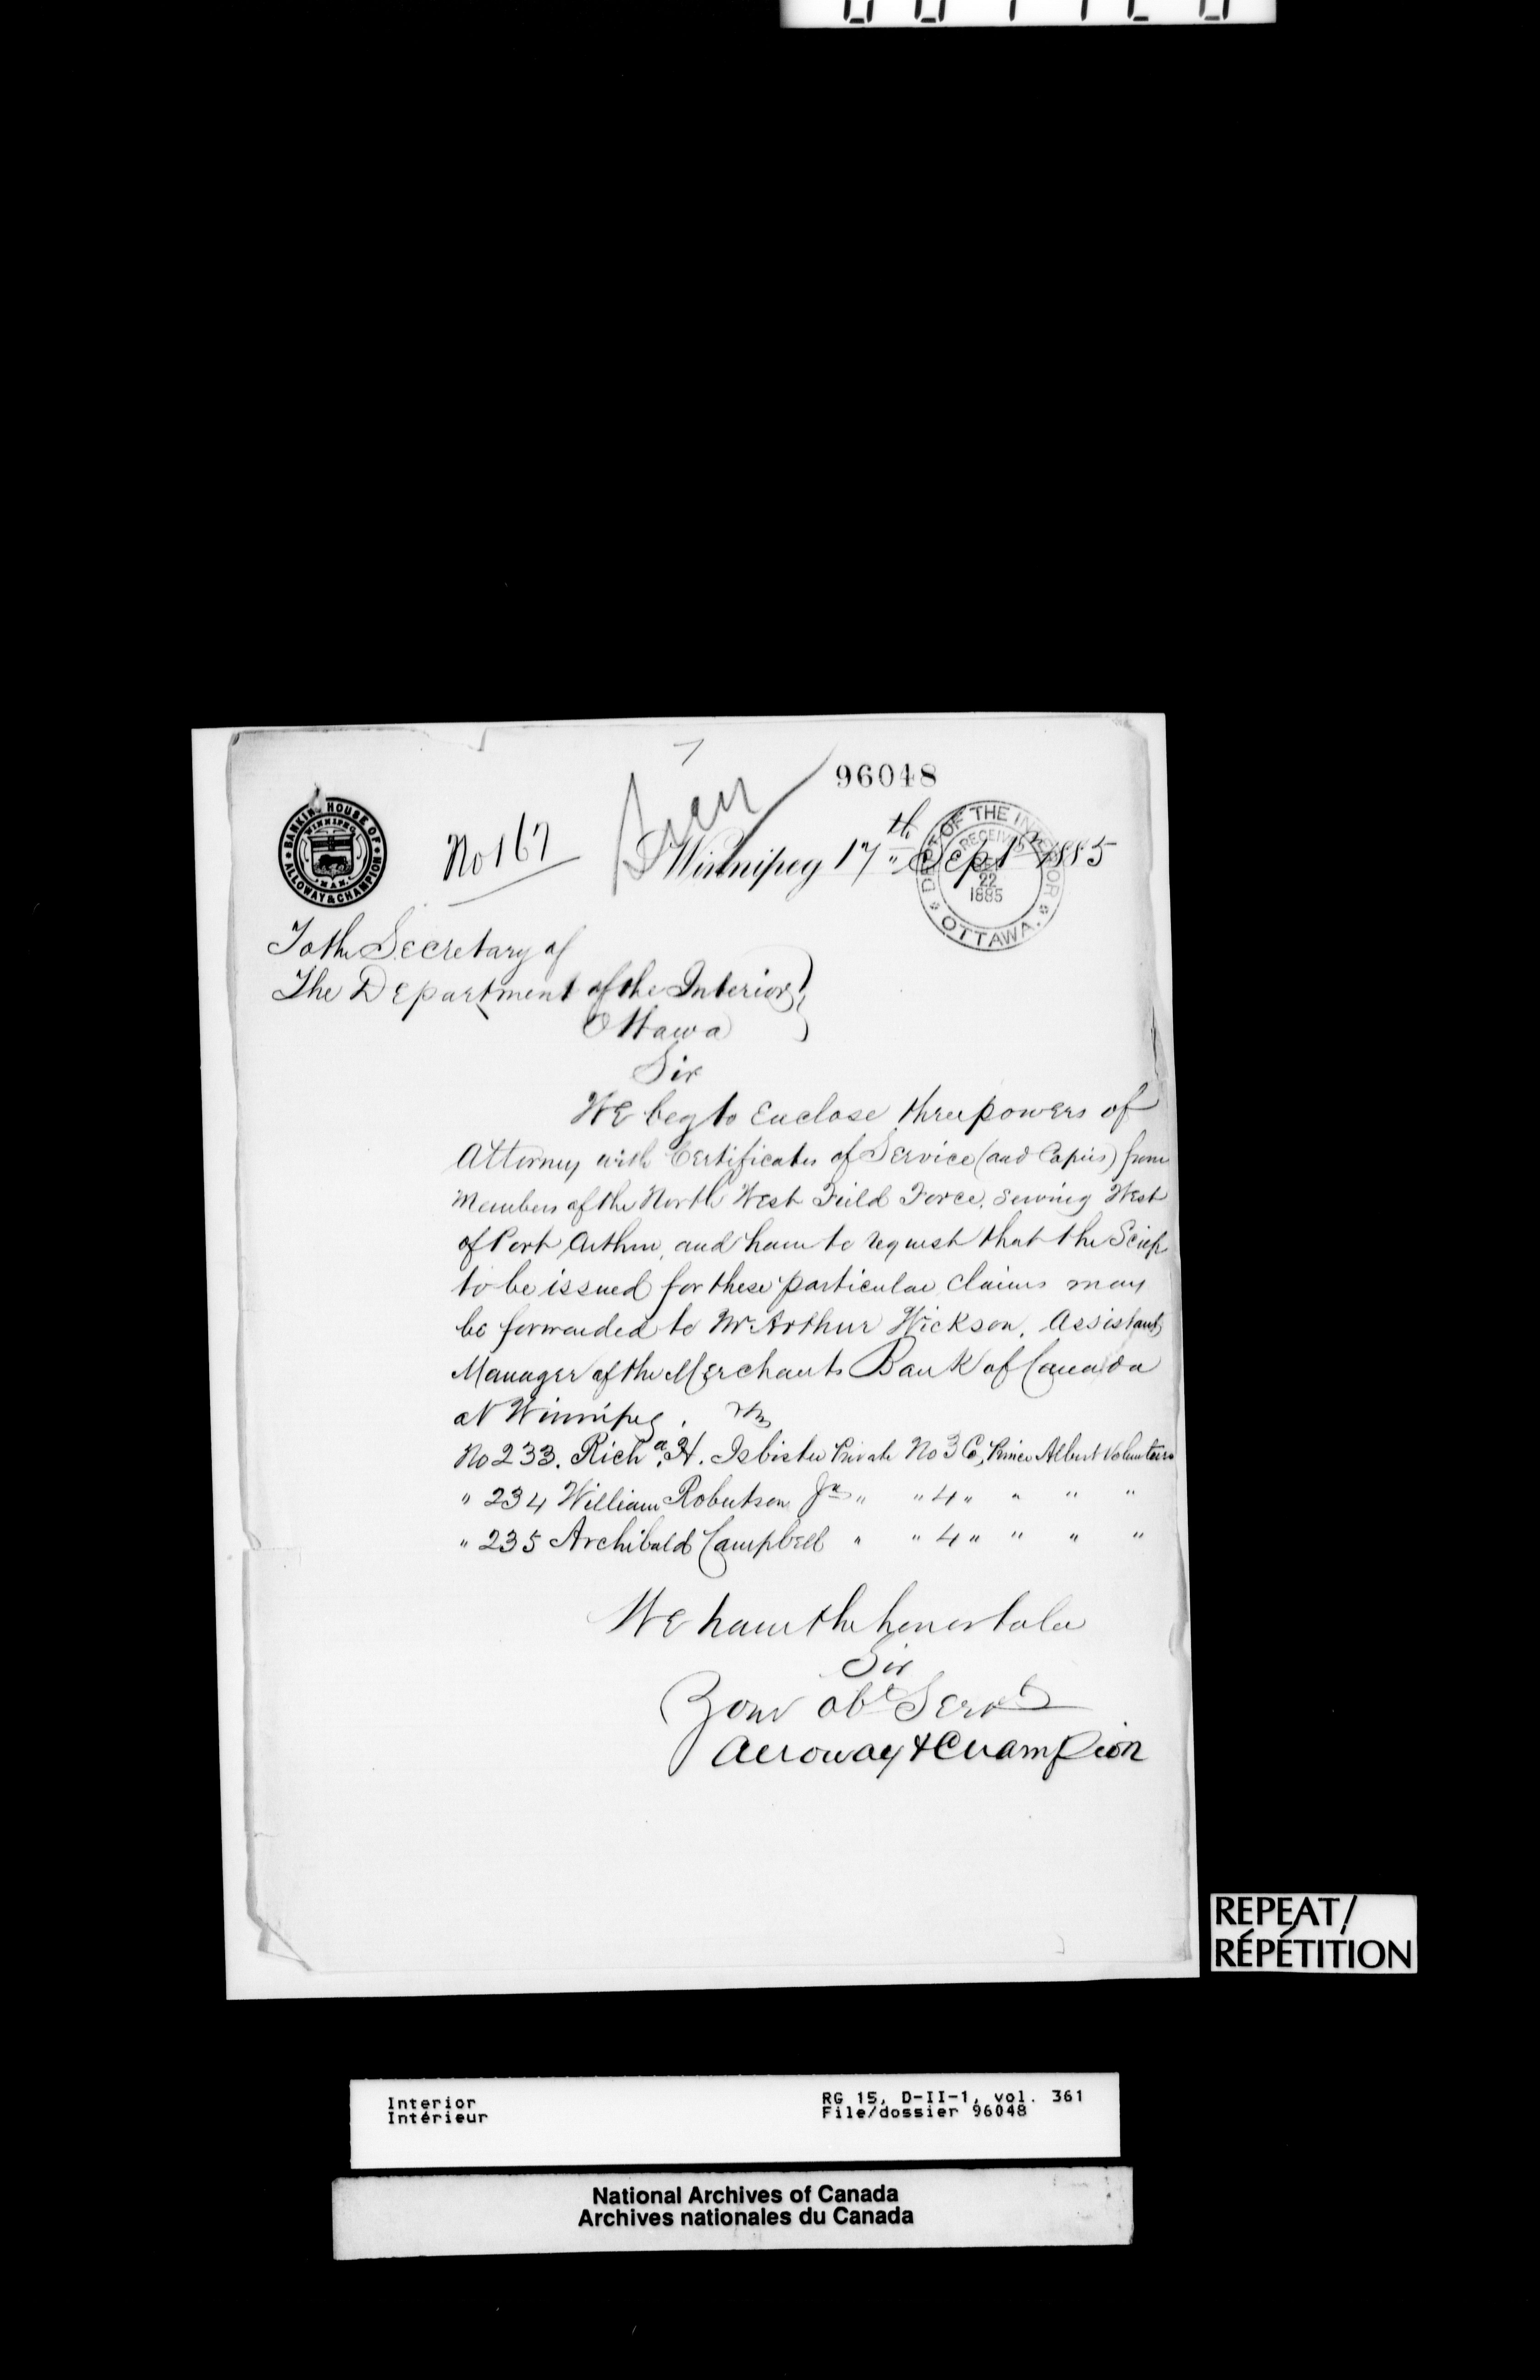 96048
BANKING HOUSE OF
WINNIPEG
MAN.
ALLOWAY & CHAMPION
No 167
Winnipeg 17th Sept 1885
DEPT OF THE INTERIOR
RECEIVED
22
1885
OTTAWA.
To the Secretary of
The Department of the Interior
Ottawa
Sir
We beg to Enclose three powers of
Attorney with Certificates of Service (and Copies) from
Members of the North West Field Force, Serving West
of Port Arthur, and have to request that the Scrip
to be issued for these particular Claims may
be forwarded to Mr Arthur Wickson, Assistant
Manager of the Merchants Bank of Canada
at Winnipeg.
No 233. Richd. H. Isbister Private No 3 Co, Prince Albert Volunteers
" 234 William Robertson Jr " " 4 " " " "
" 235 Archibald Campbell " " 4 " " " "
We have the honor to be
Sir
Your obt Servts
Alloway & Champion
REPEAT/
RÉPÉTITION
Interior
Intérieur
RG 15, D-II-1, vol. 361
File/dossier 96048
National Archives of Canada
Archives nationales du Canada